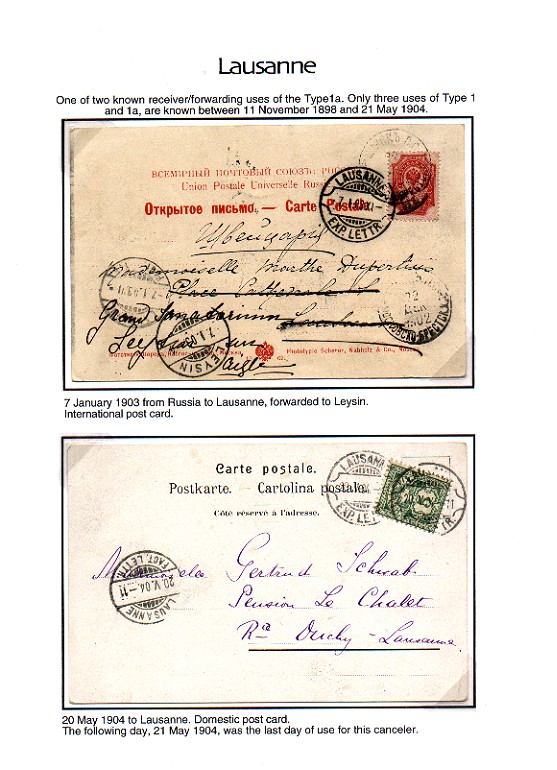 Lausanne
One of two known receiver/forwarding uses of the Type1a. Only three uses of Type 1
and 1a, are known between 11 November 1898 and 21 May 1904.
ВСЕМІРНЫЙ ПОЧТОВЫЙ СОЮЗЪ.
Union Postale Universelle
Открытое письмо. — Carte Postale.
LAUSANNE
EXP. LETTR.
Швейцарія
Mademoiselle Marthe Dupertuis
Place
22
ДЕК
1902
Grand Sanatorium
Leysin sur
Aigle
LEYSIN
7 January 1903 from Russia to Lausanne, forwarded to Leysin.
International post card.
Carte postale.
Postkarte. – Cartolina postale.
Côté réservé à l'adresse.
LAUSANNE
EXP. LETTR.
LAUSANNE
20.V.04.-11
FACT. LETTR.
Mademoiselle Gertrud Schwab
Pension Le Chalet
Ouchy - Lausanne.
20 May 1904 to Lausanne. Domestic post card.
The following day, 21 May 1904, was the last day of use for this canceler.